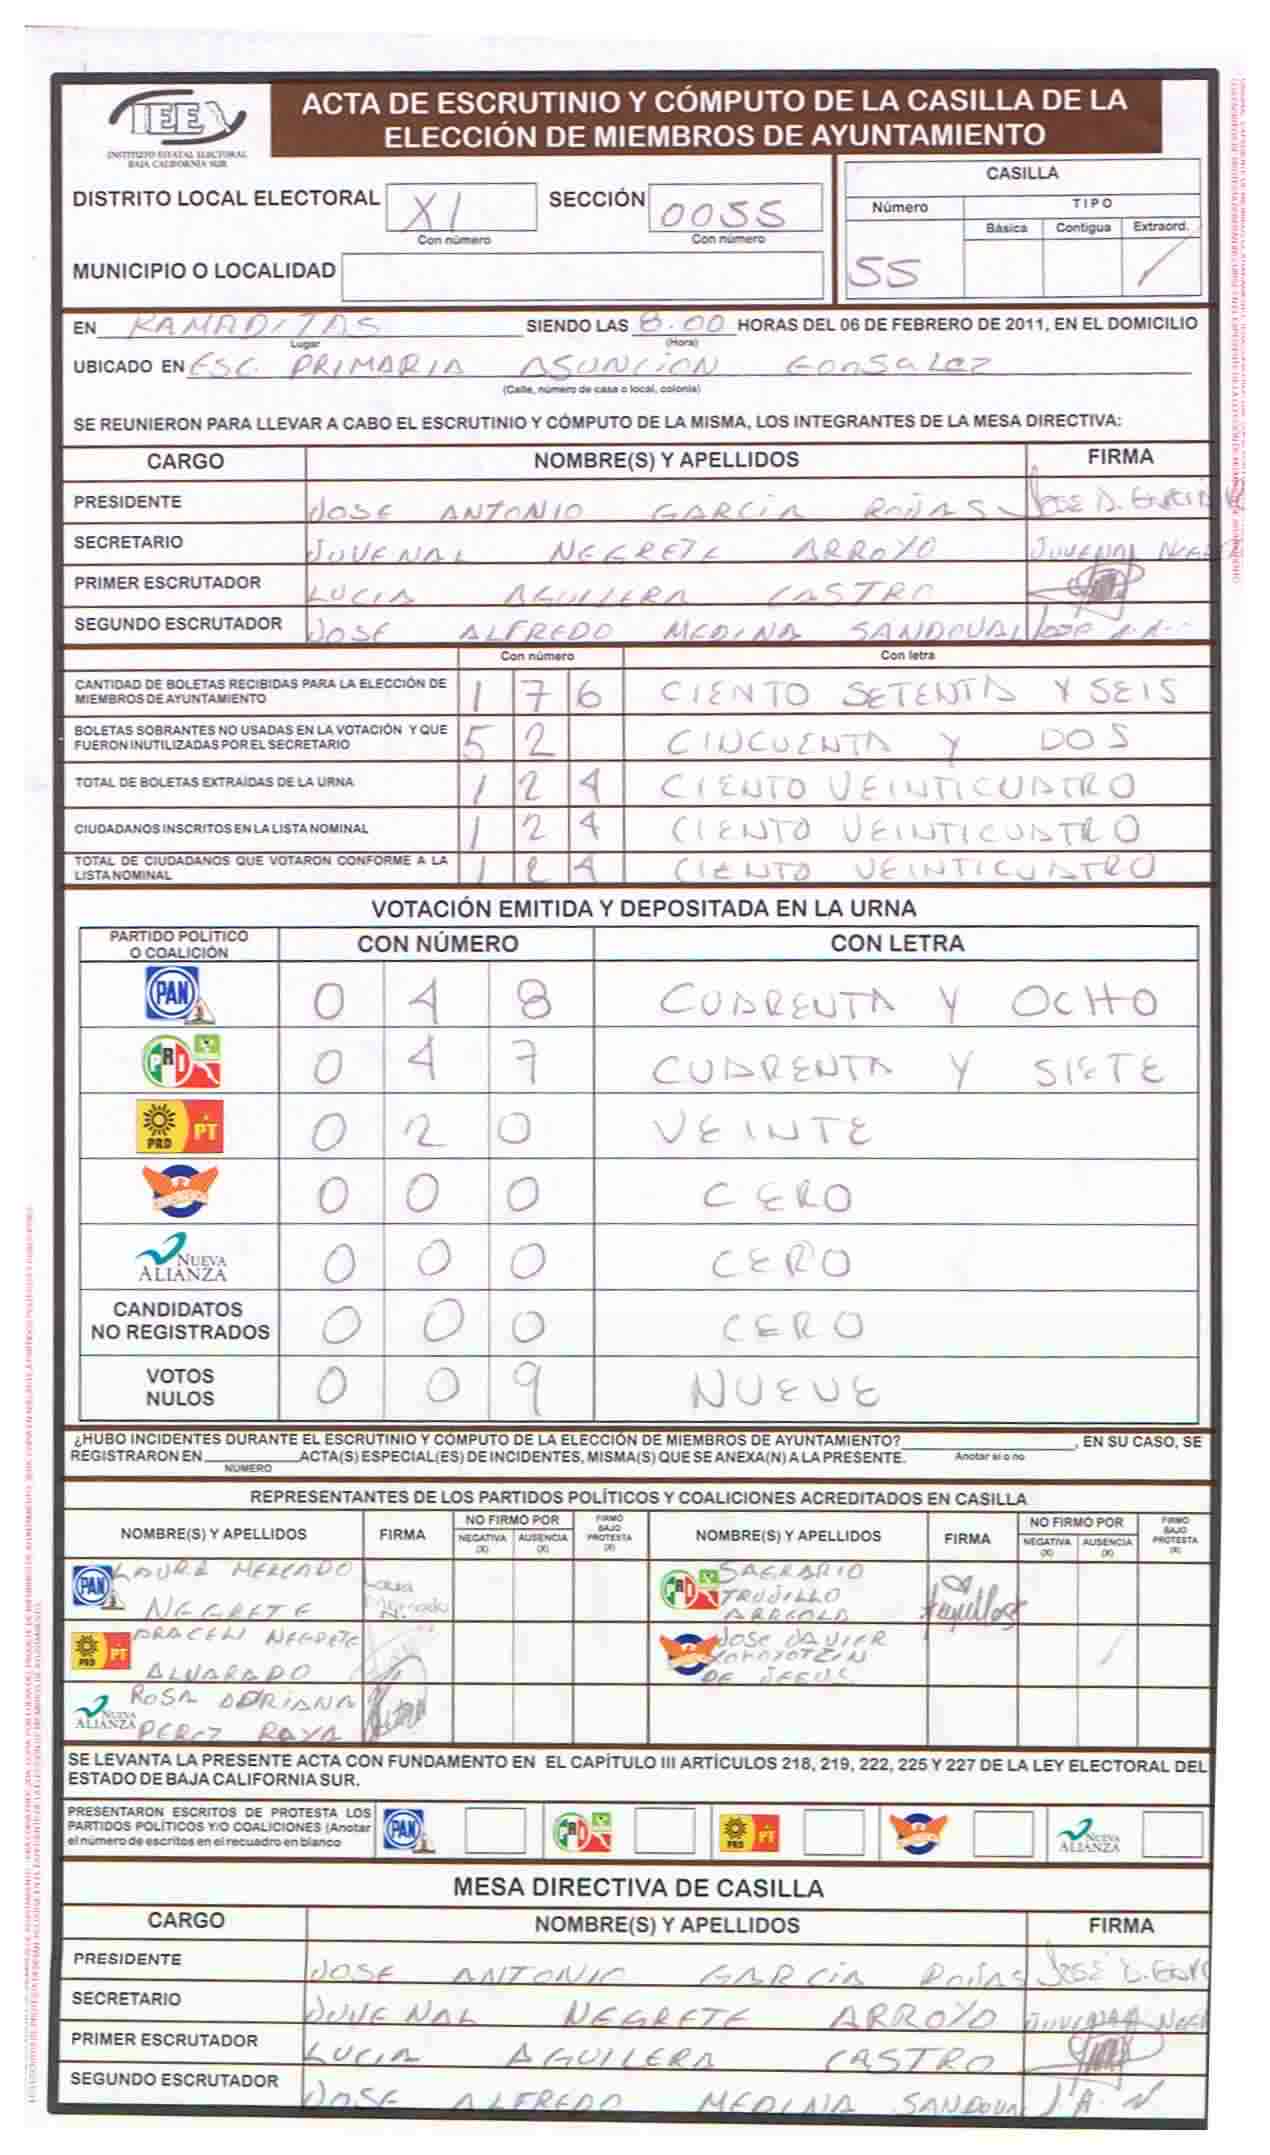 IEE
INSTITUTO ESTATAL ELECTORAL
BAJA CALIFORNIA SUR
ACTA DE ESCRUTINIO Y CÓMPUTO DE LA CASILLA DE LA
ELECCIÓN DE MIEMBROS DE AYUNTAMIENTO
DISTRITO LOCAL ELECTORAL XI SECCIÓN 0055
Con número Con número
MUNICIPIO O LOCALIDAD
CASILLA
Número TIPO
Básica Contigua Extraord.
55 /
EN RAMADITAS SIENDO LAS 8:00 HORAS DEL 06 DE FEBRERO DE 2011, EN EL DOMICILIO
Lugar (Hora)
UBICADO EN ESC. PRIMARIA ASUNCION GonSaLez
(Calle, número de casa o local, colonia)
SE REUNIERON PARA LLEVAR A CABO EL ESCRUTINIO Y CÓMPUTO DE LA MISMA, LOS INTEGRANTES DE LA MESA DIRECTIVA:
CARGO NOMBRE(S) Y APELLIDOS FIRMA
PRESIDENTE JOSE ANTONIO GARCIA ROJAS
SECRETARIO JUVENAL NEGRETE ARROYO JUVENAL
PRIMER ESCRUTADOR LUCIA AGUILERA CASTRO
SEGUNDO ESCRUTADOR JOSE ALFREDO MEDINA SANDOVAL
Con número Con letra
CANTIDAD DE BOLETAS RECIBIDAS PARA LA ELECCIÓN DE
MIEMBROS DE AYUNTAMIENTO 1 7 6 CIENTO SETENTA Y SEIS
BOLETAS SOBRANTES NO USADAS EN LA VOTACIÓN Y QUE
FUERON INUTILIZADAS POR EL SECRETARIO 5 2 CINCUENTA Y DOS
TOTAL DE BOLETAS EXTRAÍDAS DE LA URNA 1 2 4 CIENTO VEINTICUATRO
CIUDADANOS INSCRITOS EN LA LISTA NOMINAL 1 2 4 CIENTO VEINTICUATRO
TOTAL DE CIUDADANOS QUE VOTARON CONFORME A LA
LISTA NOMINAL 1 2 4 CIENTO VEINTICUATRO
VOTACIÓN EMITIDA Y DEPOSITADA EN LA URNA
PARTIDO POLÍTICO
O COALICIÓN CON NÚMERO CON LETRA
PAN 0 4 8 CUARENTA Y OCHO
PRI 0 4 7 CUARENTA Y SIETE
PRD PT 0 2 0 VEINTE
0 0 0 CERO
NUEVA
ALIANZA 0 0 0 CERO
CANDIDATOS
NO REGISTRADOS 0 0 0 CERO
VOTOS
NULOS 0 0 9 NUEVE
¿HUBO INCIDENTES DURANTE EL ESCRUTINIO Y CÓMPUTO DE LA ELECCIÓN DE MIEMBROS DE AYUNTAMIENTO? , EN SU CASO, SE
REGISTRARON EN ACTA(S) ESPECIAL(ES) DE INCIDENTES, MISMA(S) QUE SE ANEXA(N) A LA PRESENTE. Anotar si o no
NÚMERO
REPRESENTANTES DE LOS PARTIDOS POLÍTICOS Y COALICIONES ACREDITADOS EN CASILLA
NOMBRE(S) Y APELLIDOS FIRMA NO FIRMO POR NEGATIVA (X) AUSENCIA (X) FIRMO BAJO PROTESTA (X) NOMBRE(S) Y APELLIDOS FIRMA NO FIRMO POR NEGATIVA (X) AUSENCIA (X) FIRMO BAJO PROTESTA (X)
PAN LAURA MERCADO
NEGRETE
PRI SAGRARIO
TRUJILLO
ARREOLA
PRD PT ARACELI NEGRETE
ALVARADO
JOSE JAVIER
DE JESUS /
NUEVA
ALIANZA ROSA ADRIANA
PEREZ RAYA
SE LEVANTA LA PRESENTE ACTA CON FUNDAMENTO EN EL CAPÍTULO III ARTÍCULOS 218, 219, 222, 225 Y 227 DE LA LEY ELECTORAL DEL
ESTADO DE BAJA CALIFORNIA SUR.
PRESENTARON ESCRITOS DE PROTESTA LOS
PARTIDOS POLÍTICOS Y/O COALICIONES (Anotar
el número de escritos en el recuadro en blanco
PAN PRI PRD PT NUEVA ALIANZA
MESA DIRECTIVA DE CASILLA
CARGO NOMBRE(S) Y APELLIDOS FIRMA
PRESIDENTE JOSE ANTONIO GARCIA ROJAS
SECRETARIO JUVENAL NEGRETE ARROYO
PRIMER ESCRUTADOR LUCIA AGUILERA CASTRO
SEGUNDO ESCRUTADOR JOSE ALFREDO MEDINA SANDOVAL